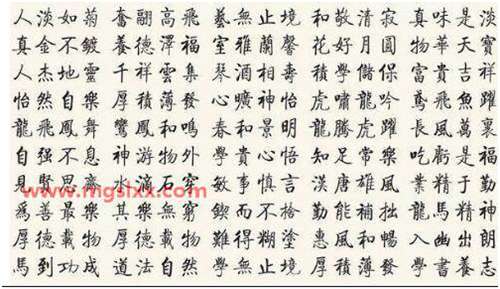 人淡如菊 奮翮高飛 藝無止境 和敬清寂 真味是淡
真金不鍍 養德澤福 室雅蘭馨 花好月圓 物華天寶
人杰地靈 千祥雲集 琴酒 壽 學儲 富貴吉祥
怡然自樂 厚積薄發 心曠神怡 虎嘯龍吟 鳶飛魚躍
龍飛鳳舞 鸞鳳和鳴 春和景明 龍騰虎躍 長風萬裏
自强不息 神游物外 學貴心悟 知足常樂 吃虧是福
見賢思齊 水滴石穿 敏事慎言 漢唐雄風 業精于勤
爲善最樂 其樂無窮 鍥而不捨 勤能補拙 龍馬精神
厚德載物 厚德載物 難得糊塗 惠風和暢 入幽出朗
馬到功成 道法自然 學無止境 厚積薄發 學書養志
www.mgslxx.com